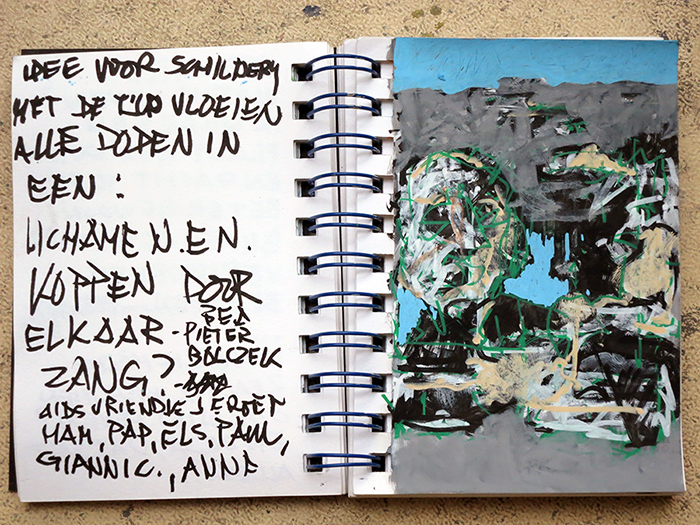 IDEE VOOR SCHILDERY
MET DE TIJD VLOEIEN
ALLE DODEN IN
EEN :
LICHAMEN.EN.
KOPPEN DOOR
ELKAAR - BEN
PIETER
BOLCZEK
ZANG?
AIDS VRIENDJE JEROEN
MAM, PAP, ELS, PAUL,
GIANNIC., ANNA